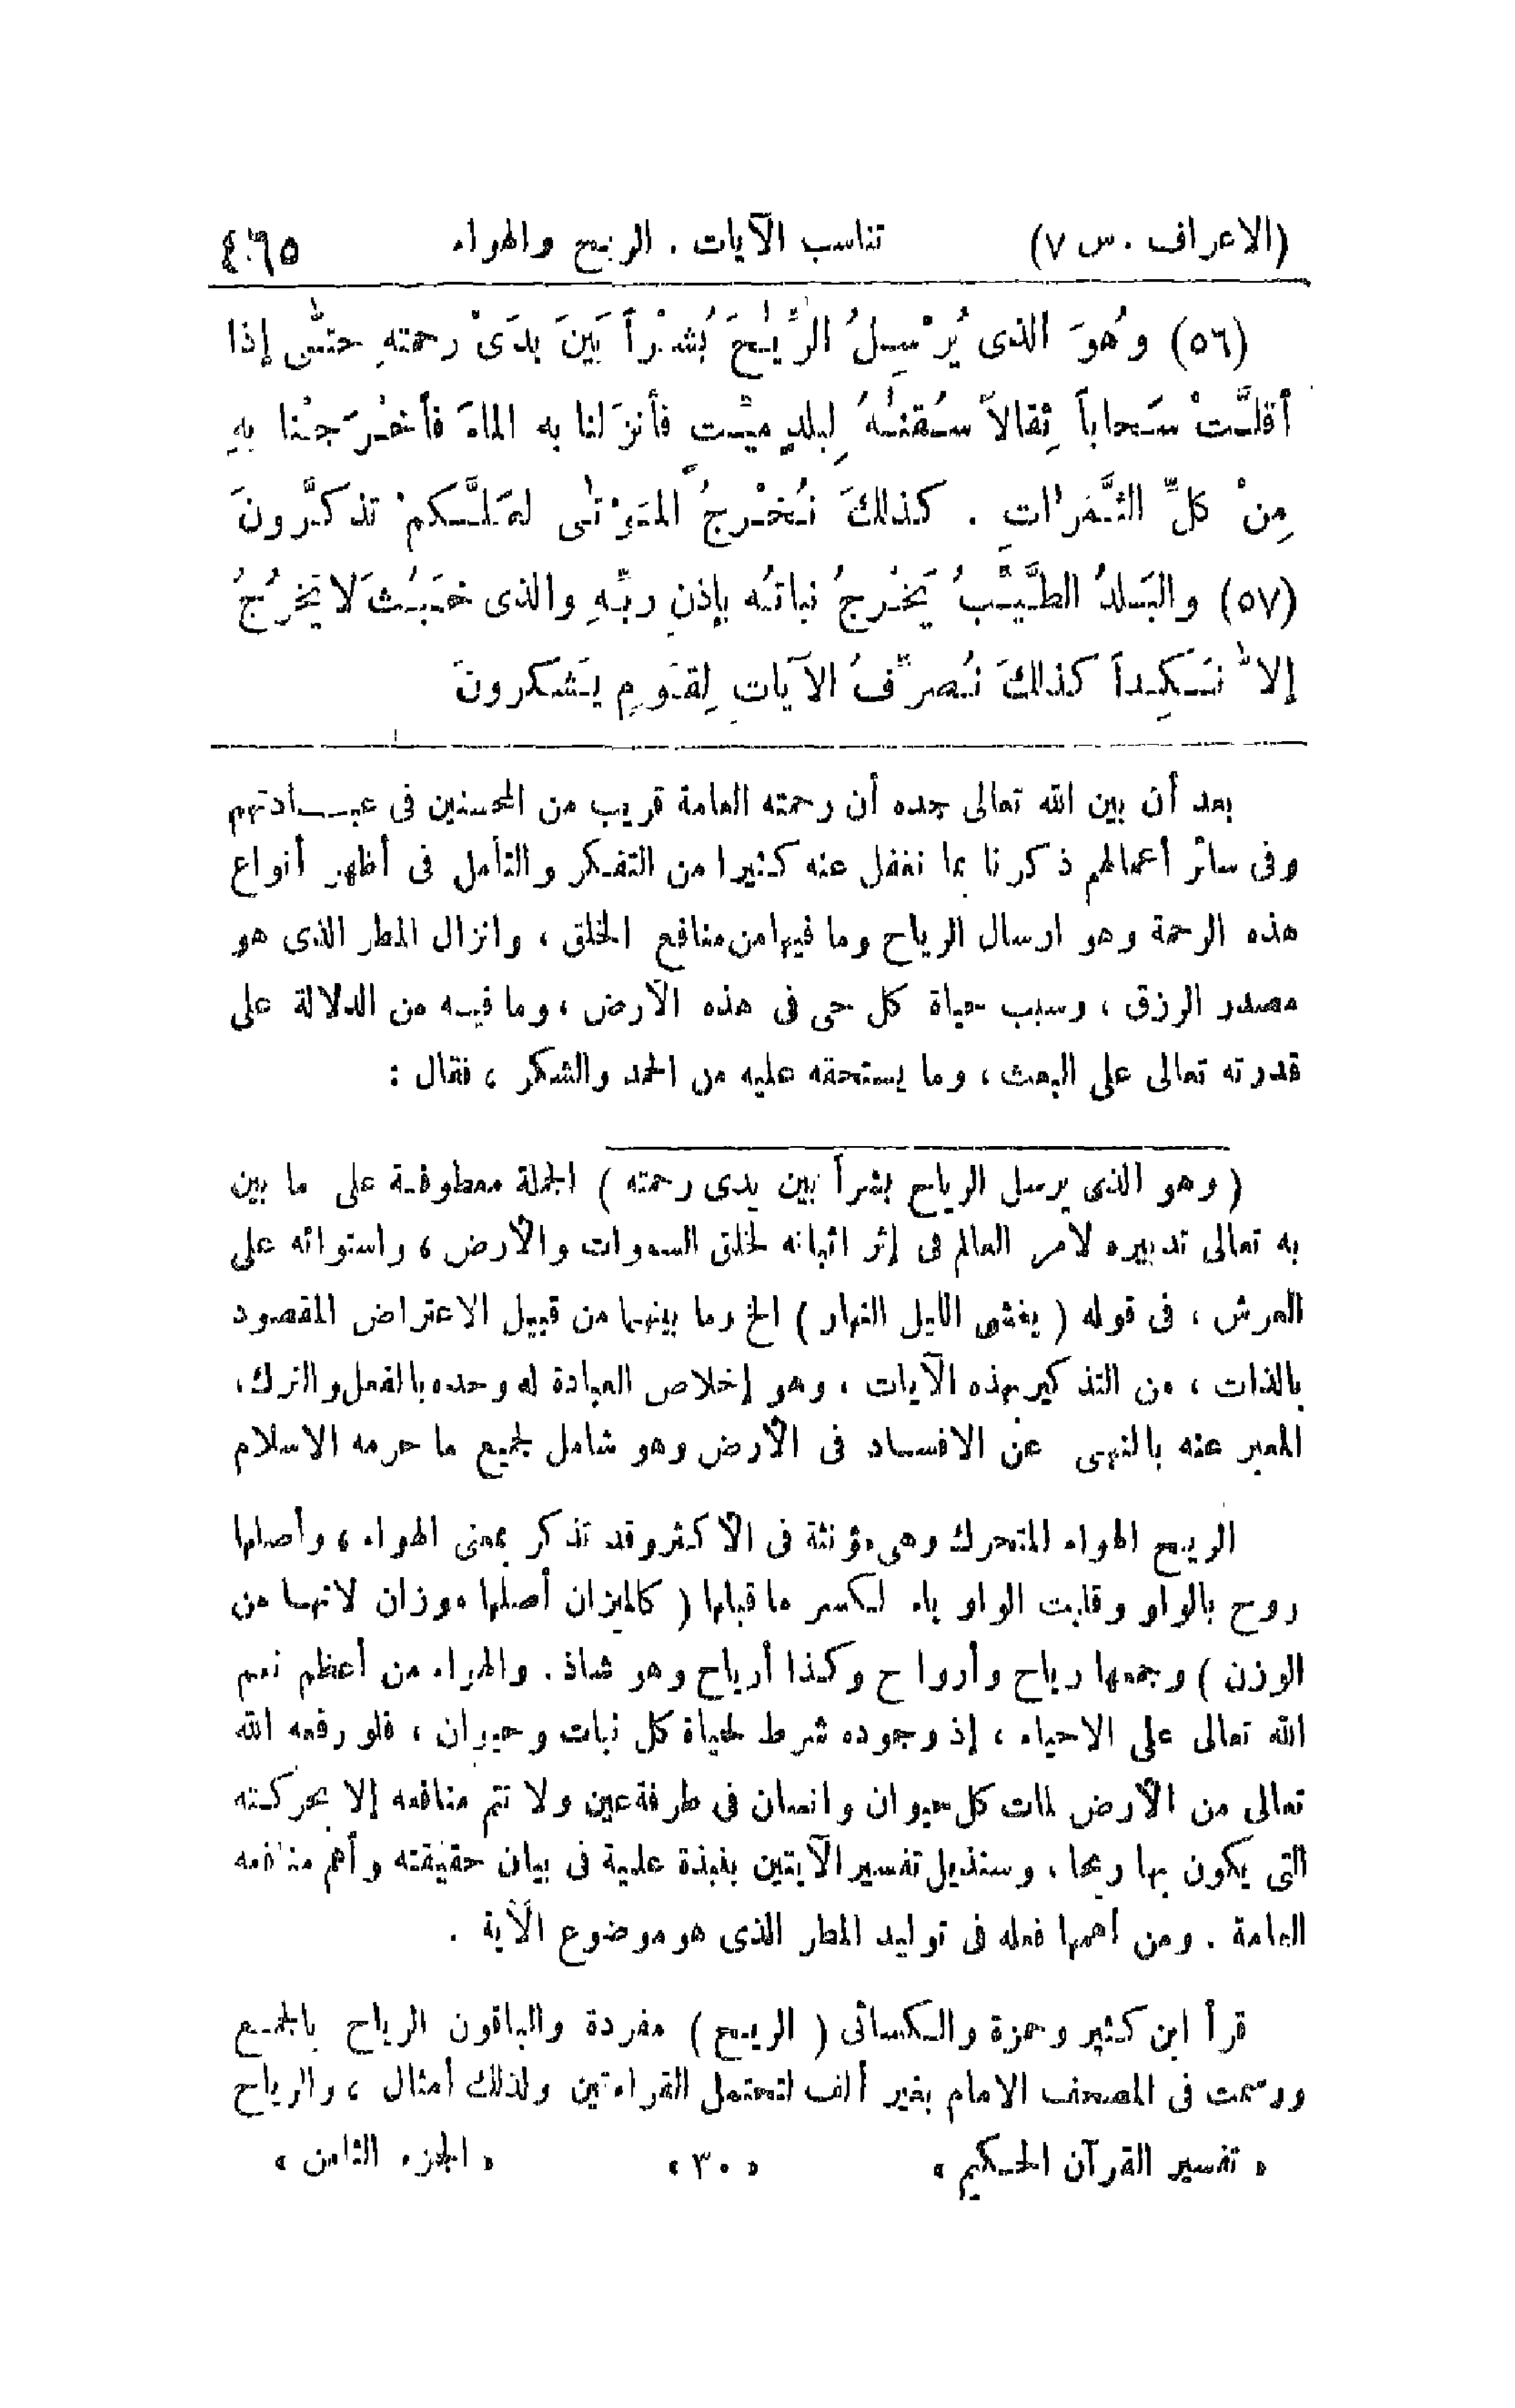 (الاعراف . س ٧) تناسب الآيات . الريح والهواء ٤٦٥
(٥٦) وهُوَ الذى يُرْسِلُ الرِّيٰحَ بُشْراً بَينَ يدَىْ رحمتهِ حتّٰى إذا
أقلَّتْ سَحاباً ثِقالاً سُقنٰهُ لِبلدٍ ميْتٍ فأنزَلنا به الماءَ فأخْرَجنْا بهِ
مِنْ كلِّ الثَّمَرٰاتِ . كذالكَ نُخْرِجُ المَوْتٰى لعَلَّكمْ تذكَّرُونَ
(٥٧) والبَلدُ الطَّيِّبُ يَخْرجُ نباتُه بإذنِ ربِّهِ والذى خَبُثَ لا يَخرُجُ
إلاّ نَكِداً كذالكَ نُصرِّفُ الآياتِ لِقَومٍ يَشكرونَ
بعد أن بين الله تعالى جده أن رحمته العامة قريب من المحسنين فى عبــادتهم
وفى سائر أعمالهم ذكرنا بما نغفل عنه كثيرا من التفكر والتأمل فى أظهر أنواع
هذه الرحمة وهو ارسال الرياح وما فيها من منافع الخلق ، وانزال المطر الذى هو
مصدر الرزق ، وسبب حياة كل حى فى هذه الأرض ، وما فيه من الدلالة على
قدرته تعالى على البعث ، وما يستحقه عليه من الحمد والشكر ، فقال :
( وهو الذى يرسل الرياح بشراً بين يدى رحمته ) الجملة معطوفة على ما بين
به تعالى تدبيره لأمر العالم فى إثر اثباته لخلق السموات والأرض ، واستوائه على
العرش ، فى قوله ( يغشى الليل النهار ) الخ وما بينهما من قبيل الاعتراض المقصود
بالذات ، من التذكير بهذه الآيات ، وهو إخلاص العبادة له وحده بالفعل والترك،
المعبر عنه بالنهى عن الافساد فى الأرض وهو شامل لجميع ما حرمه الاسلام
الريح الهواء المتحرك وهى مؤنثة فى الأكثر وقد تذكر بمعنى الهواء ، وأصلها
روح بالواو وقلبت الواو ياء لكسر ما قبلها ( كالميزان أصلها موزان لانها من
الوزن ) وجمعها رياح وأرواح وكذا أرياح وهو شاذ . والهواء من أعظم نعم
الله تعالى على الاحياء ، إذ وجوده شرط لحياة كل نبات وحيوان ، فلو رفعه الله
تعالى من الأرض لمات كل حيوان وانسان فى طرفة عين ولا تتم منافعه إلا بحركته
التى يكون بها ريحا ، وسنذيل تفسير الآيتين بنبذة علمية فى بيان حقيقته وأهم منافعه
العامة . ومن أهمها فعله فى توليد المطر الذى هو موضوع الآية .
قرأ ابن كثير وحمزة والكسائى ( الريح ) مفردة والباقون الرياح بالجمع
ورسمت فى المصحف الامام بغير ألف لتحتمل القراءتين ولذلك أمثال ، والرياح
« تفسير القرآن الحكيم » « ٣٠ » « الجزء الثامن »